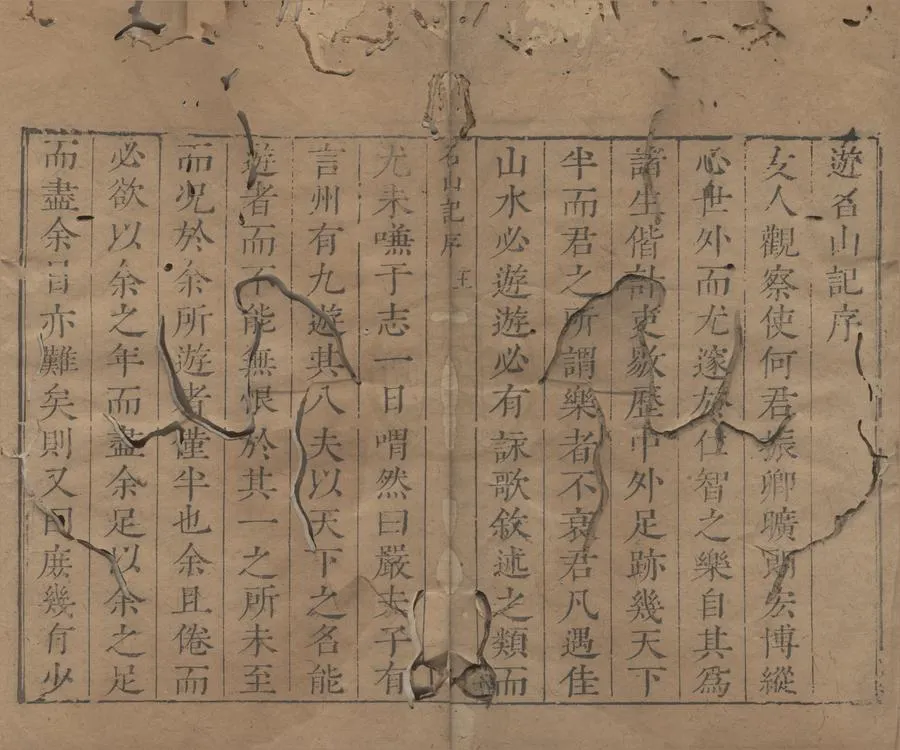 遊名山記序
友人觀察使何君振卿曠朗宏博縱
心世外而尤邃於仁智之樂自其爲
諸生偕計吏敭歷中外足跡幾天下
半而君之所謂樂者不衰君凡遇佳
山水必遊遊必有詠歌敘述之類而
名山記序
尤未嗛于志一日喟然曰嚴夫子有
言州有九遊其八夫以天下之名能
遊者而不能無恨於其一之所未至
而況於余所遊者僅半也余且倦而
必欲以余之年而盡余足以余之足
而盡余目亦難矣則又曰庶幾有少